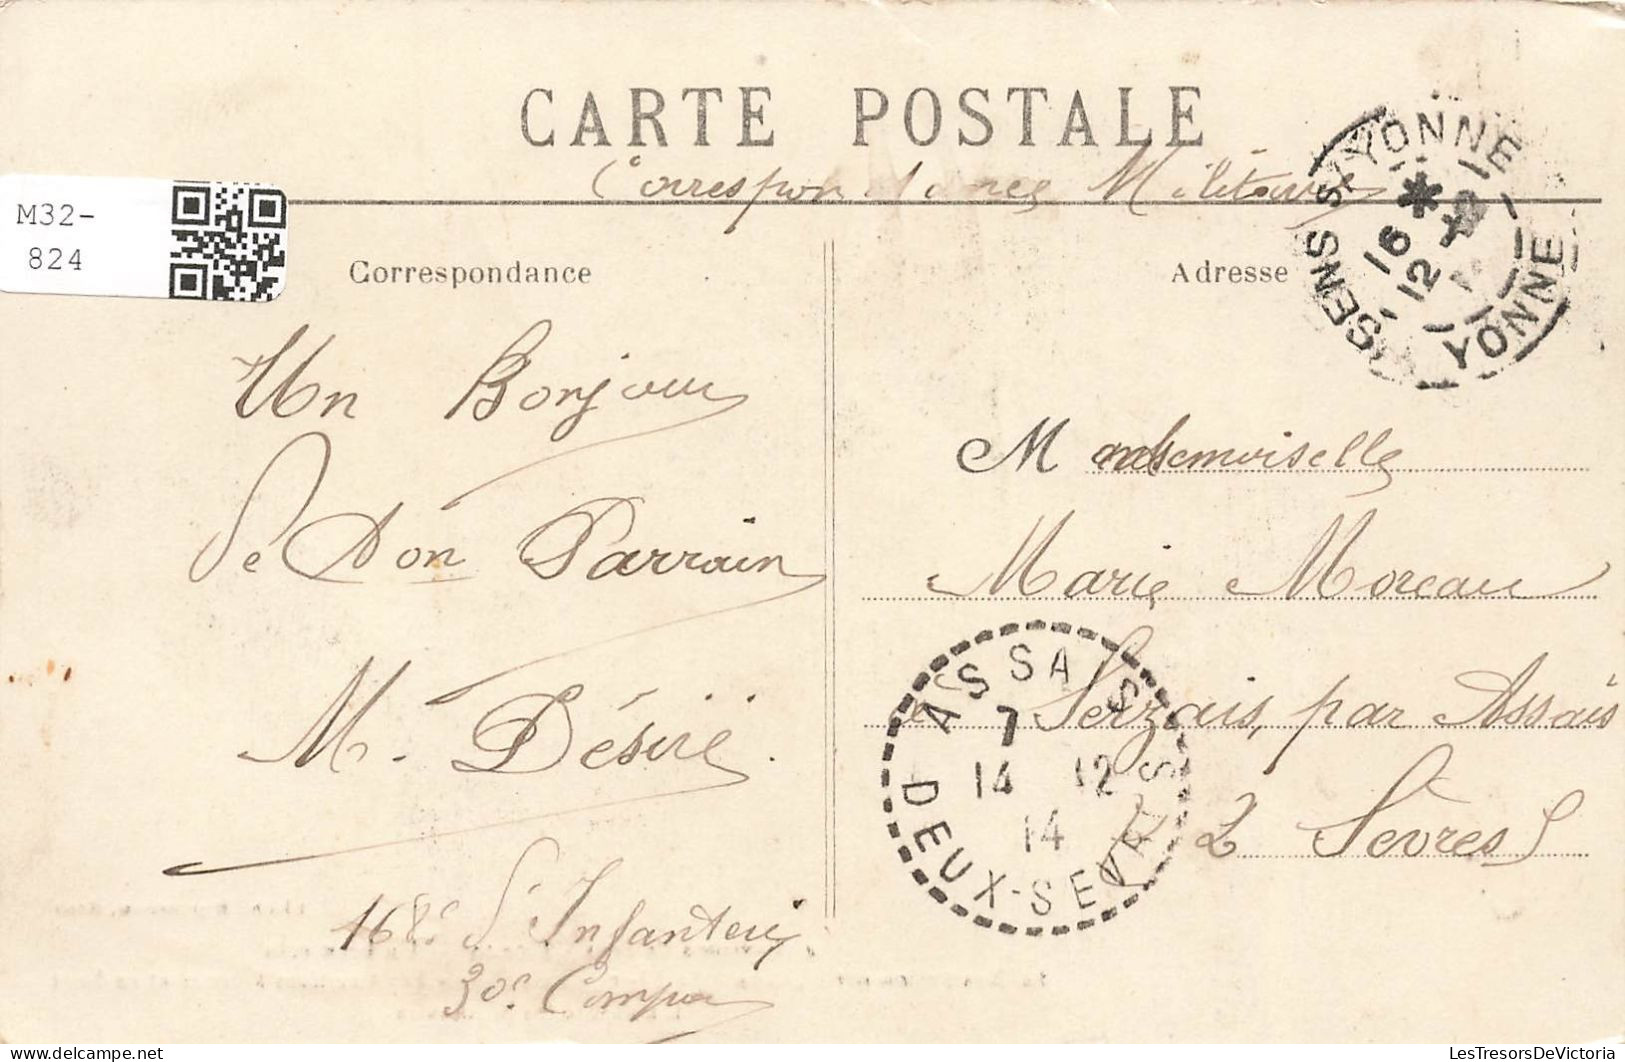 CARTE POSTALE
Correspondance Militaire
M32-
824
Correspondance
Adresse
SENS S/YONNE
16 *
12
YONNE
Un Bonjour
De Ton Parrain
M. Désiré.
168e d'Infanterie
30e Compa
M ademoiselle
Marie Moreau
à Serzais, par Assais
2 Sèvres
ASSAIS
7
14 12
14
DEUX-SEVRES
www.delcampe.net
LesTresorsDeVictoria